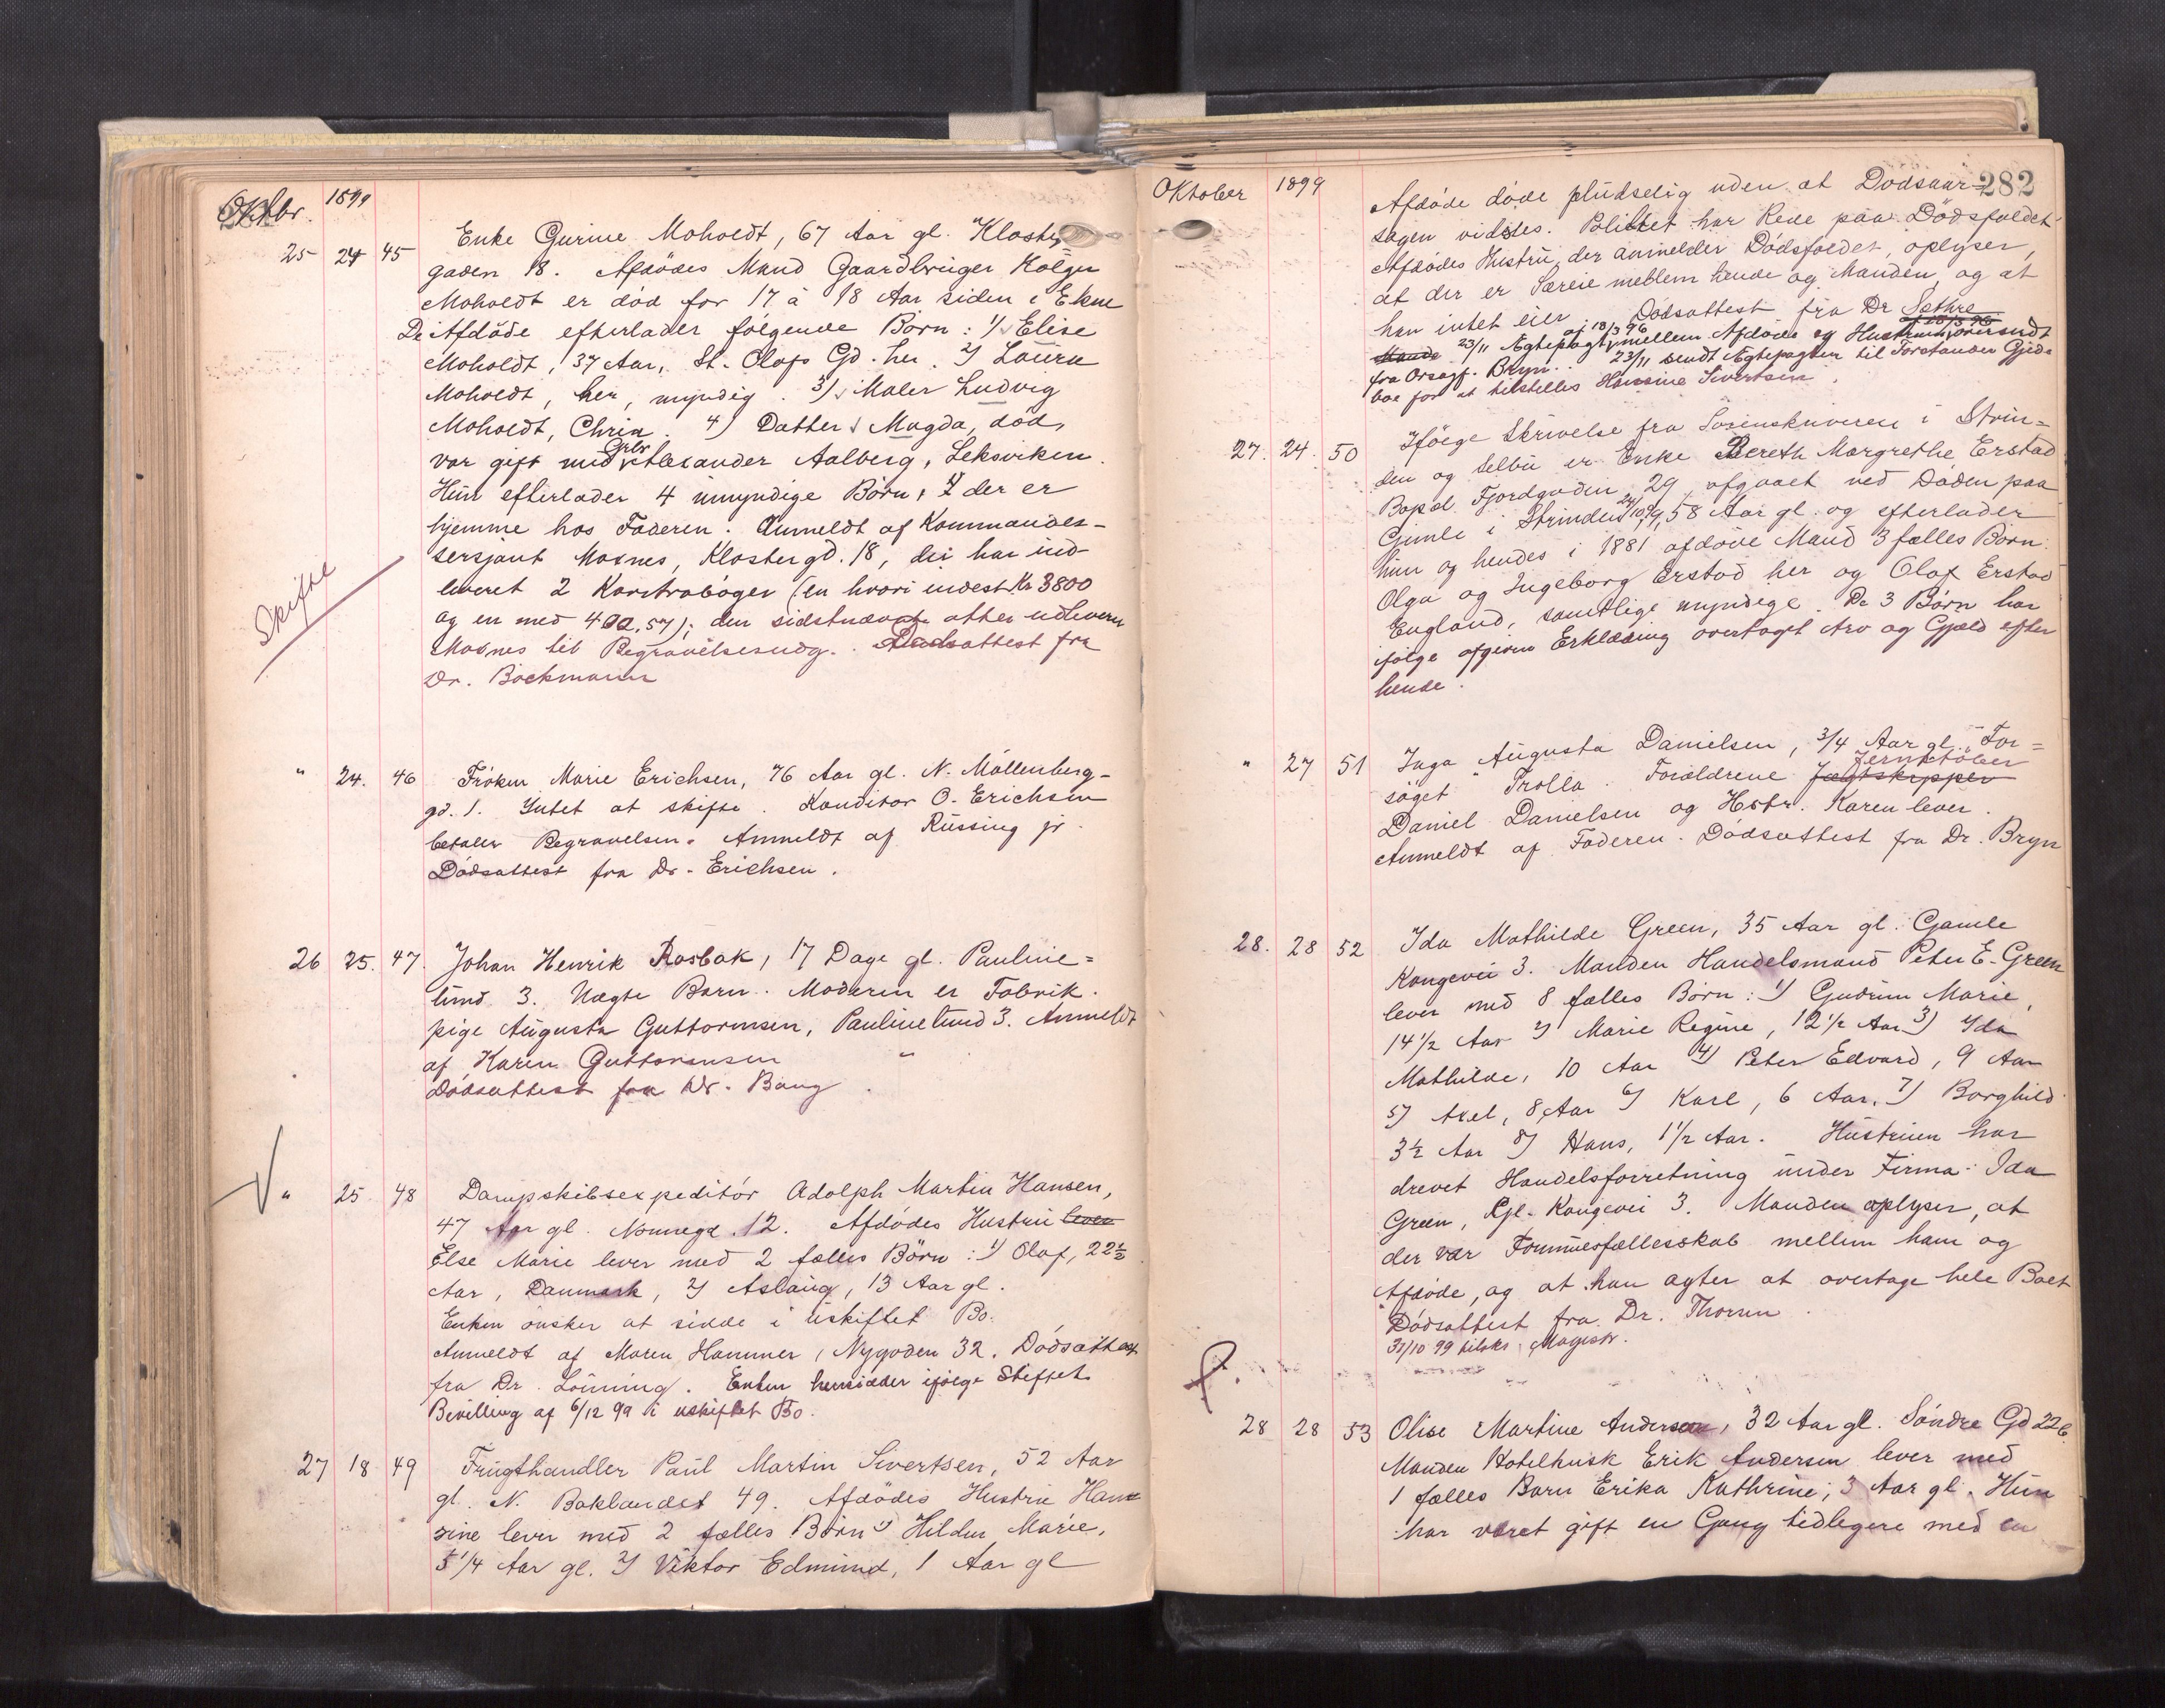 Oktbr. 1899
25 24 45 Enke Gurine Moholdt, 67 Aar gl. Kloster
gaden 18. Afdödes Mand Gaardbruger Holger
Moholdt er död for 17 à 18 Aar siden i Ekne
De Afdöde efterlader fölgende Börn: 1) Elise
Moholdt, 37 Aar, St. Olafs Gd. her. 2) Laura
Moholdt, her, myndig. 3) Maler Ludvig
Moholdt, Chria. 4) Datter Magda, död,
var gift med Grbr Alexander Aalberg, Leksviken.
Hun efterlader 4 umyndige Börn, der er
hjemme hos Faderen. Anmeldt af Kommander-
sersjant Moxnes, Klostergd. 18, der har ind-
leveret 2 Kontraböger (en hvori indest. Kr 3800
og en med 402,57); den sidstnævnte atter udleveret
Moxnes til Begravelsesudg. Dödsattest fra
Dr. Böckmann
Skifte
" 24. 46 Fröken Marie Erichsen, 76 Aar gl. N. Möllenberg-
gd. 1. Intet at skifte. Konditor O. Erichsen
betaler Begravelsen. Anmeldt af Russing jr.
Dödsattest fra Dr. Erichsen.
26 25. 47. Johan Henrik Rosbak, 17 Dage gl. Pauline=
lund 3. Uægte Barn. Moderen er Fabrik.
pige Augusta Guttormsen, Paulinelund 3. Anmeldt
af Karen Guttormsen "
Dödsattest fra Dr. Bang.
" 25 48 Dampskibsexpeditör Adolph Martin Hansen,
47 Aar gl. Nonnegd. 12. Afdödes Hustru lever
Else Marie lever med 2 fælles Börn: 1) Olaf, 22½
Aar, Danmark, 2) Aslaug, 13 Aar gl.
Enken önsker at sidde i uskiftet Bo.
Anmeldt af Maren Hammer, Nygaden 32. Dödsattest
fra Dr. Lönning. Enken hensidder ifölge Stiftets
Bevilling af 6/12 99 i uskiftet Bo.
27 18 49 Frugthandler Paul Martin Sivertsen, 52 Aar
gl. N. Baklandet 49. Afdödes Hustru Han
sine lever med 2 fælles Börn 1) Hildur Marie,
5 1/4 Aar gl. 2) Viktor Edmund, 1 Aar gl
Oktober 1899 282
Afdöde döde pludselig uden at Dödsaar-
sagen vidstes. Politiet har Rede paa Dödsfaldet
Afdödes Hustru, der anmelder Dödsfaldet, oplyser,
at der er Særeie mellem hende og Manden, og at
han intet eier. Dödsattest fra Dr Sethre
Mande 23/11 Ægtepagt af 18/3 96 mellem Afdöde og Hustru oversendt
fra Orsagf. Bryn. 23/11 sendt Ægtepagten til Forstander Gjed-
boe for at tilstilles Hansine Sivertsen.
27. 24. 50 Ifölge Skrivelse fra Sorenskriveren i Strin=
den og Selbu er Enke Bereth Margrethe Erstad
Bopæl Fjordgaden 29, afgaaet ved Döden paa
Gimle i Strinden 24/10 99, 58 Aar gl. og efterlader
hun og hendes i 1881 afdöde Mand 3 fælles Börn:
Olga og Ingeborg Erstad her og Olaf Erstad
England, samtlige myndige. De 3 Börn har
ifölge afgiven Erklæring overtaget Arv og Gjæld efter
hende.
" 27 51 Inga Augusta Danielsen, 3/4 Aar gl. "For=
söget" Trolla. Forældrene Jægtskipper Jernstöber
Daniel Danielsen og Hstr. Karen lever.
Anmeldt af Faderen. Dödsattest fra Dr. Bryn
28. 28 52 Ida Mathilde Green, 35 Aar gl. Gamle
Kongevei 3. Manden Handelsmand Peter E. Green
lever med 8 fælles Börn: 1) Gudrun Marie,
14 1/2 Aar 2) Marie Regine, 12 1/2 Aar 3) Ida
Mathilde, 10 Aar 4) Peter Edvard, 9 Aar
5) Axel, 8 Aar 6) Karl, 6 Aar, 7) Borghild
3½ Aar 8) Hans, 1 1/2 Aar. Hustruen har
drevet Handelsforretning under Firma: Ida
Green, Gl. Kongevei 3. Manden oplyser, at
der var Formuesfællesskab mellem ham og
Afdöde, og at han agter at overtage hele Boet
Dödsattest fra Dr. Thoresen.
31/10 99 tilskr. Magistr.
28 28 53 Olise Martine Andersen, 32 Aar gl. Söndre Gd 22b
Manden Hotelhusk Erik Andersen lever med
1 fælles Barn Erika Kathrine, 3 Aar gl. Hun
har været gift en Gang tidligere med en